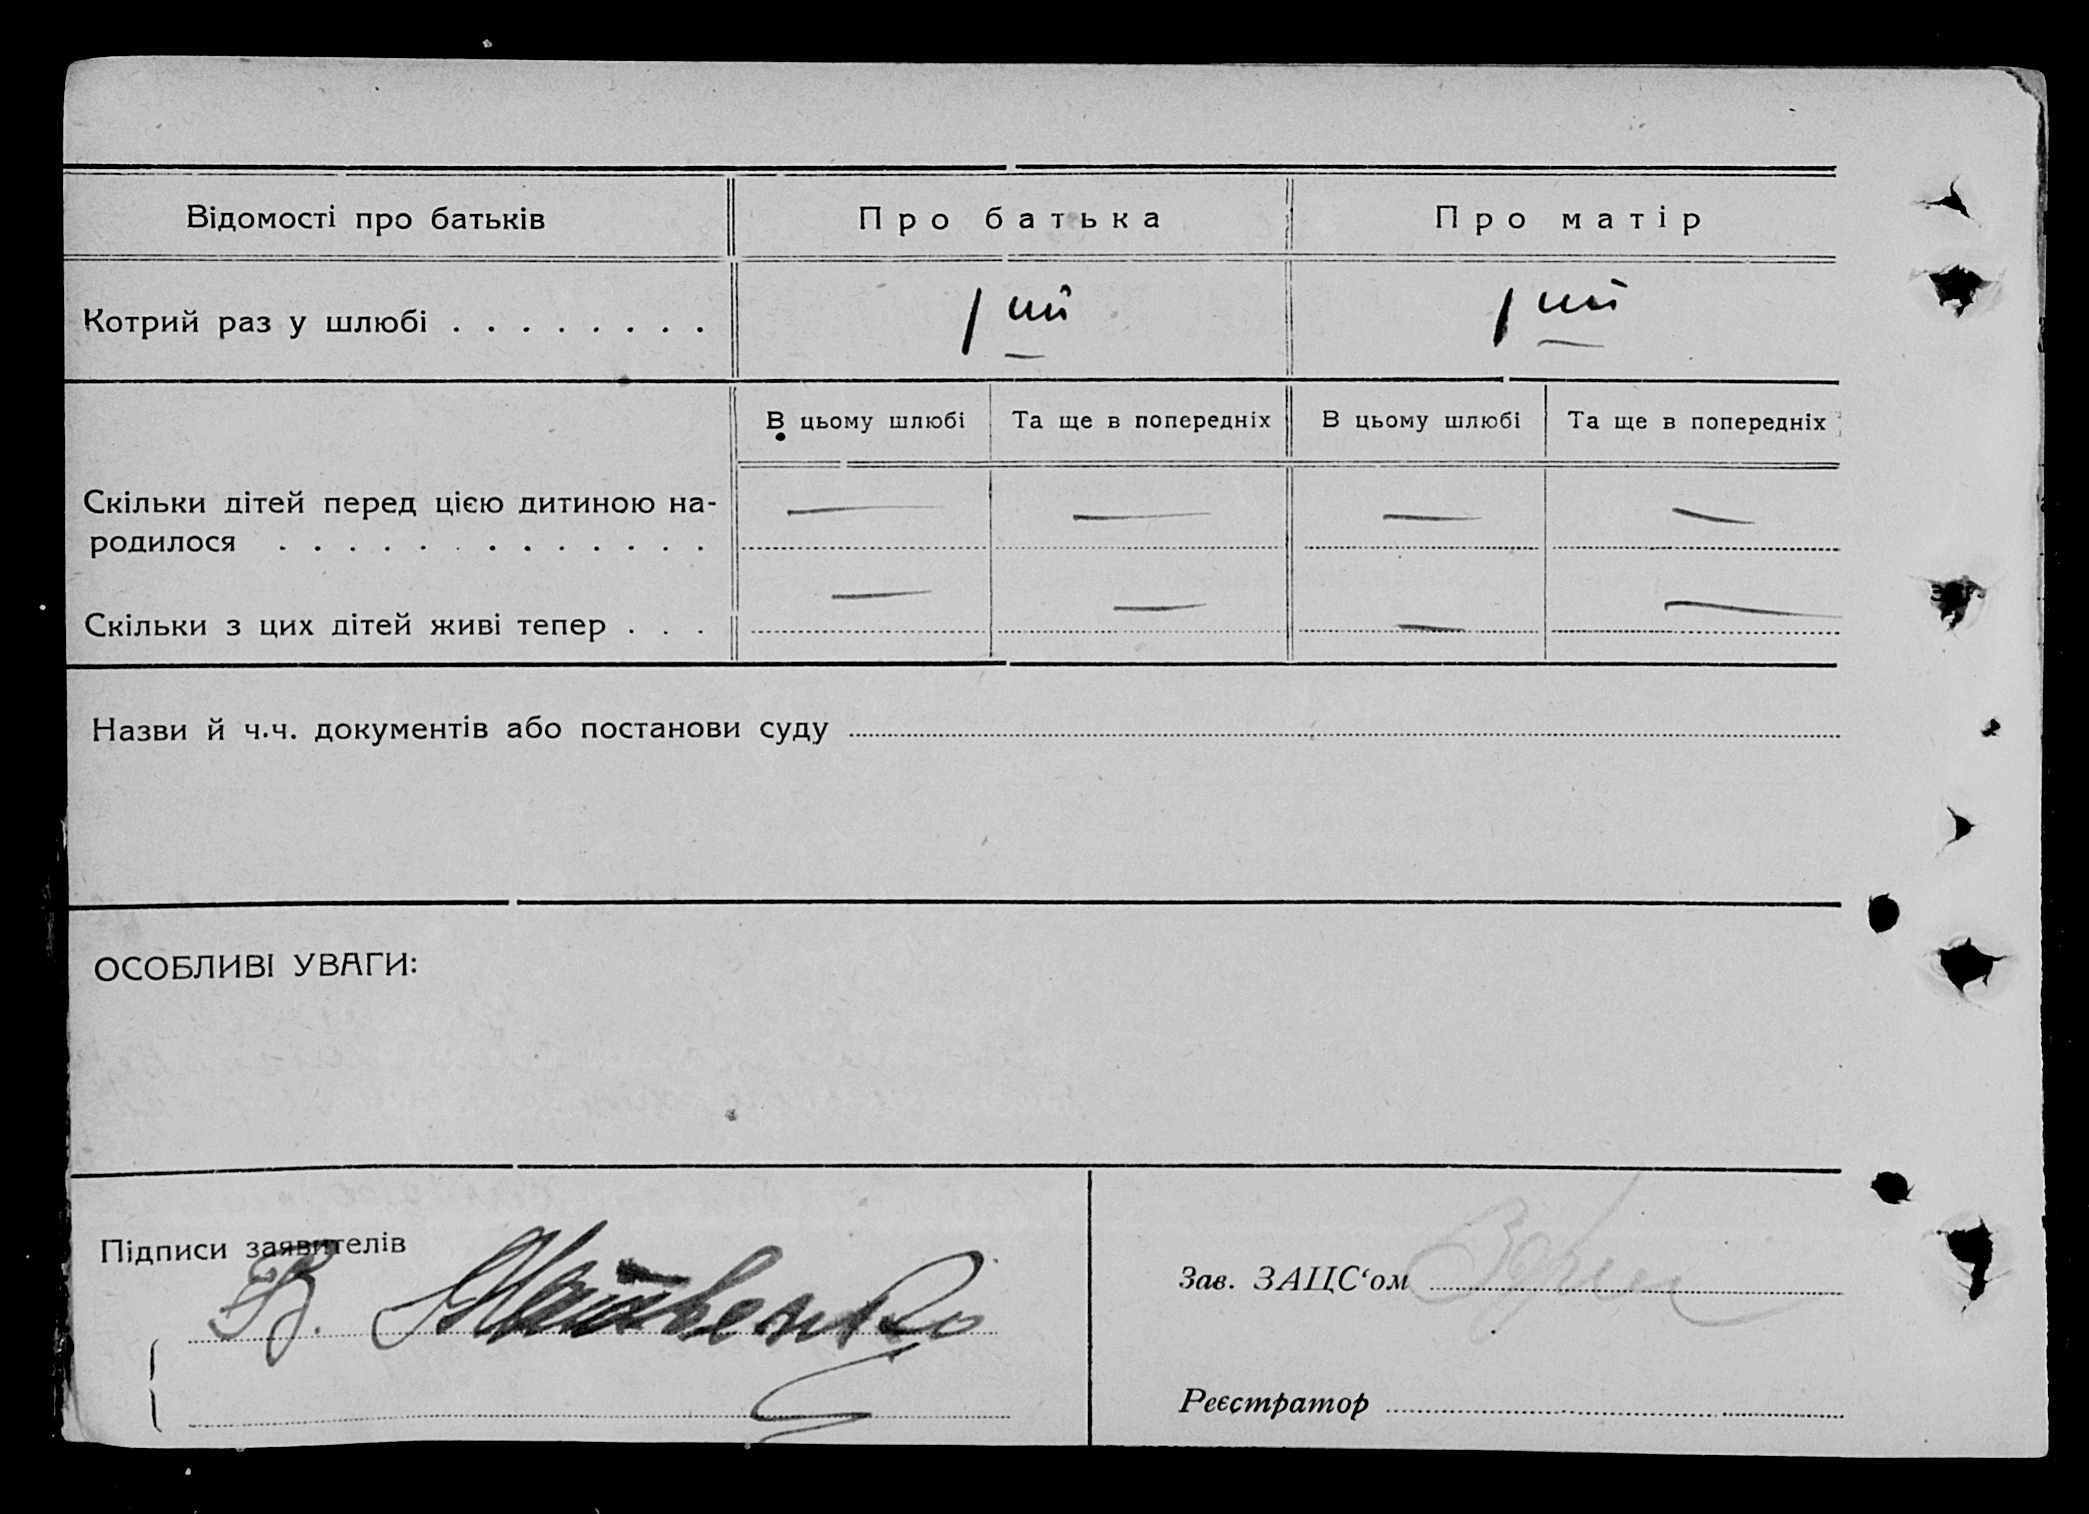 Відомості про батьків
Про батька
Про матір
Котрий раз у шлюбі . . . . . . . .
1 ший
1 ший
В цьому шлюбі
Та ще в попередніх
В цьому шлюбі
Та ще в попередніх
Скільки дітей перед цією дитиною на-
родилося . . . . . . . . . . . . .
— — — —
Скільки з цих дітей живі тепер . . .
— — — —
Назви й ч.ч. документів або постанови суду
ОСОБЛИВІ УВАГИ:
Підписи заявителів
В. Матвенко
Зав. ЗАЦС‘ом
Реєстратор